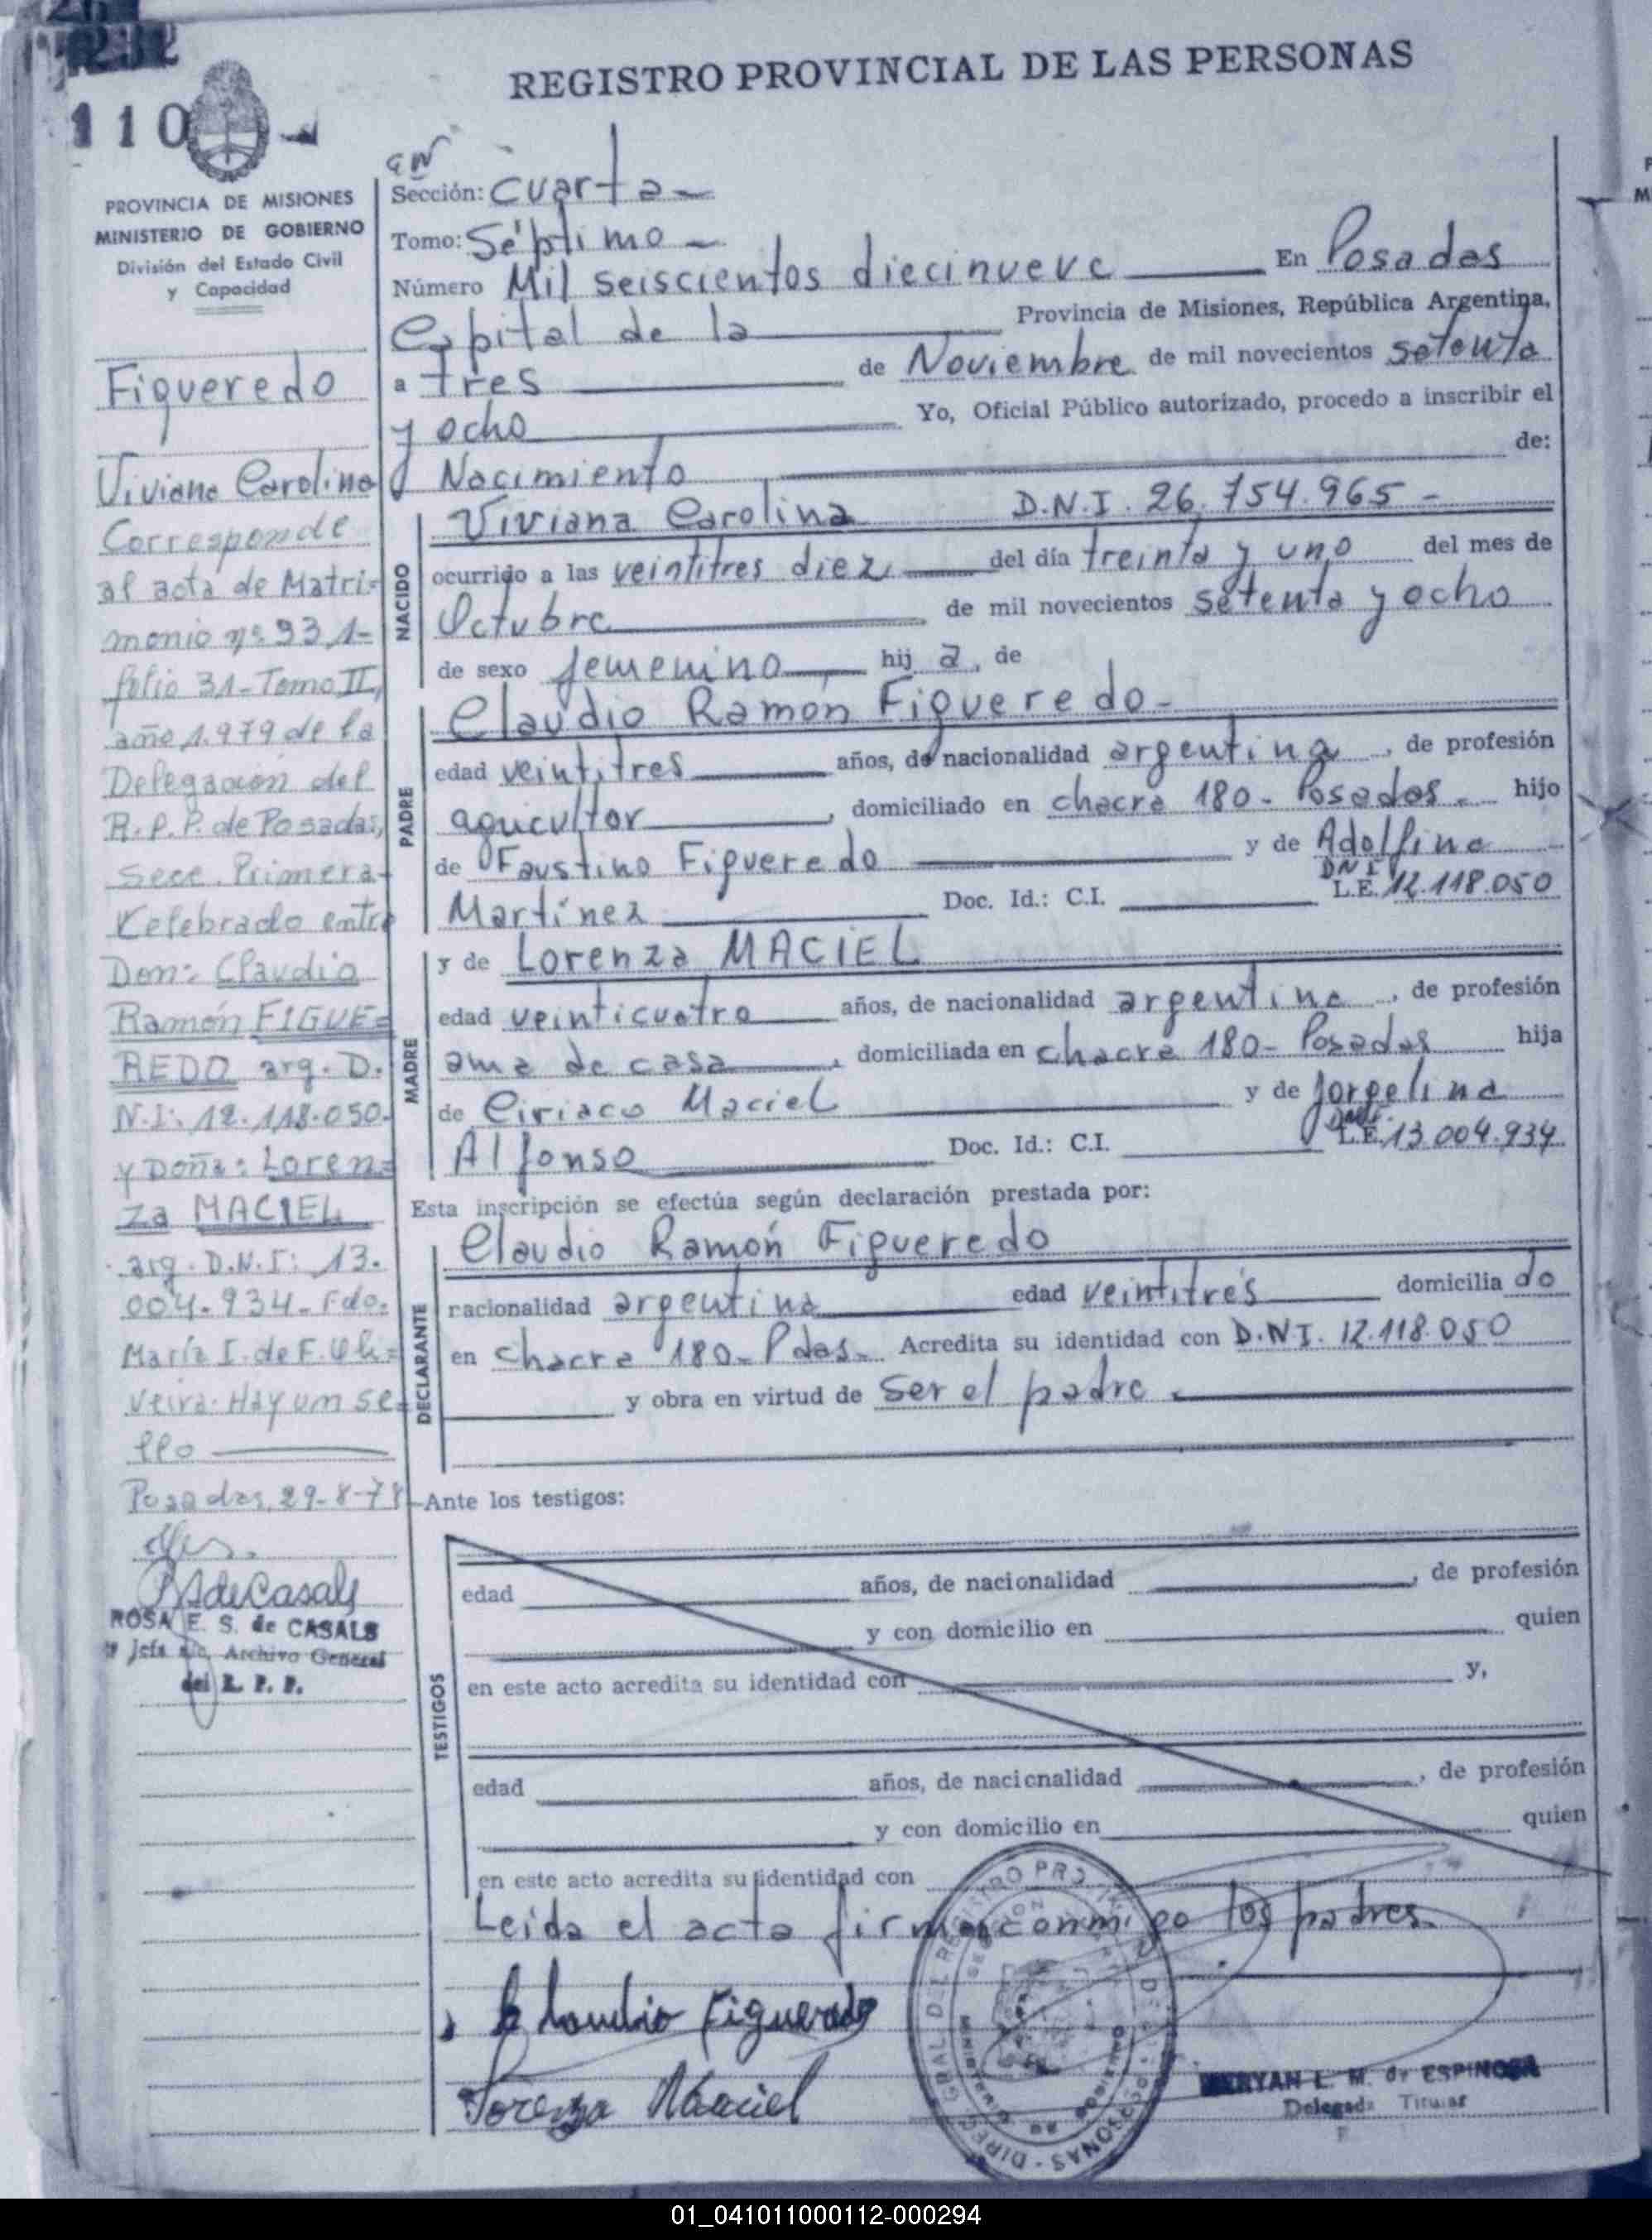 232
110
REGISTRO PROVINCIAL DE LAS PERSONAS
PROVINCIA DE MISIONES
MINISTERIO DE GOBIERNO
División del Estado Civil
y Capacidad
Figueredo
Viviana Carolina
Corresponde
al acta de Matri=
monio nº 931-
folio 31-Tomo II,
año 1.979 de la
Delegación del
R.P.P. de Posadas,
Secc. Primera-
Celebrado entre
Don: Claudio
Ramón FIGUE=
REDO arg. D.
N.I: 12.118.050-
y Doña: Loren=
za MACIEL
arg. D.N.I: 13.
004.934. Fdo.
María I. de F. Oli=
veira. Hay un se=
llo
Posadas, 29-8-79
R S de Casals
ROSA E. S. de CASALS
Jefa a/c. Archivo General
del R. P. P.
Sección: Cuarta-
Tomo: Séptimo-
Número Mil seiscientos diecinueve En Posadas
Capital de la Provincia de Misiones, República Argentina,
a tres de Noviembre de mil novecientos setenta
y ocho Yo, Oficial Público autorizado, procedo a inscribir el
Nacimiento de:
NACIDO
Viviana Carolina D.N.I. 26.754.965-
ocurrido a las veintitres diez del día treinta y uno del mes de
Octubre de mil novecientos setenta y ocho
de sexo femenino hij a, de
PADRE
Claudio Ramón Figueredo-
edad veintitres años, de nacionalidad argentina, de profesión
agricultor, domiciliado en chacra 180- Posadas- hijo
de Faustino Figueredo y de Adolfina
Martínez Doc. Id.: C.I. L.E. DNI 12.118.050
MADRE
y de Lorenza MACIEL
edad veinticuatro años, de nacionalidad argentina, de profesión
ama de casa, domiciliada en chacra 180- Posadas hija
de Ciriaco Maciel y de Jorgelina
Alfonso Doc. Id.: C.I. L.E. 13.004.934
Esta inscripción se efectúa según declaración prestada por:
DECLARANTE
Claudio Ramón Figueredo
nacionalidad argentina edad veintitrés domicilia do
en chacra 180- Pdas- Acredita su identidad con D.N.I. 12.118.050
y obra en virtud de ser el padre-
Ante los testigos:
TESTIGOS
edad años, de nacionalidad , de profesión
y con domicilio en quien
en este acto acredita su identidad con y,
edad años, de nacionalidad , de profesión
y con domicilio en quien
en este acto acredita su identidad con
Leida el acta firman conmigo los padres
Claudio Figueredo
Lorenza Maciel
MERYAN L. M. de ESPINOSA
Delegada Titular
01_041011000112-000294